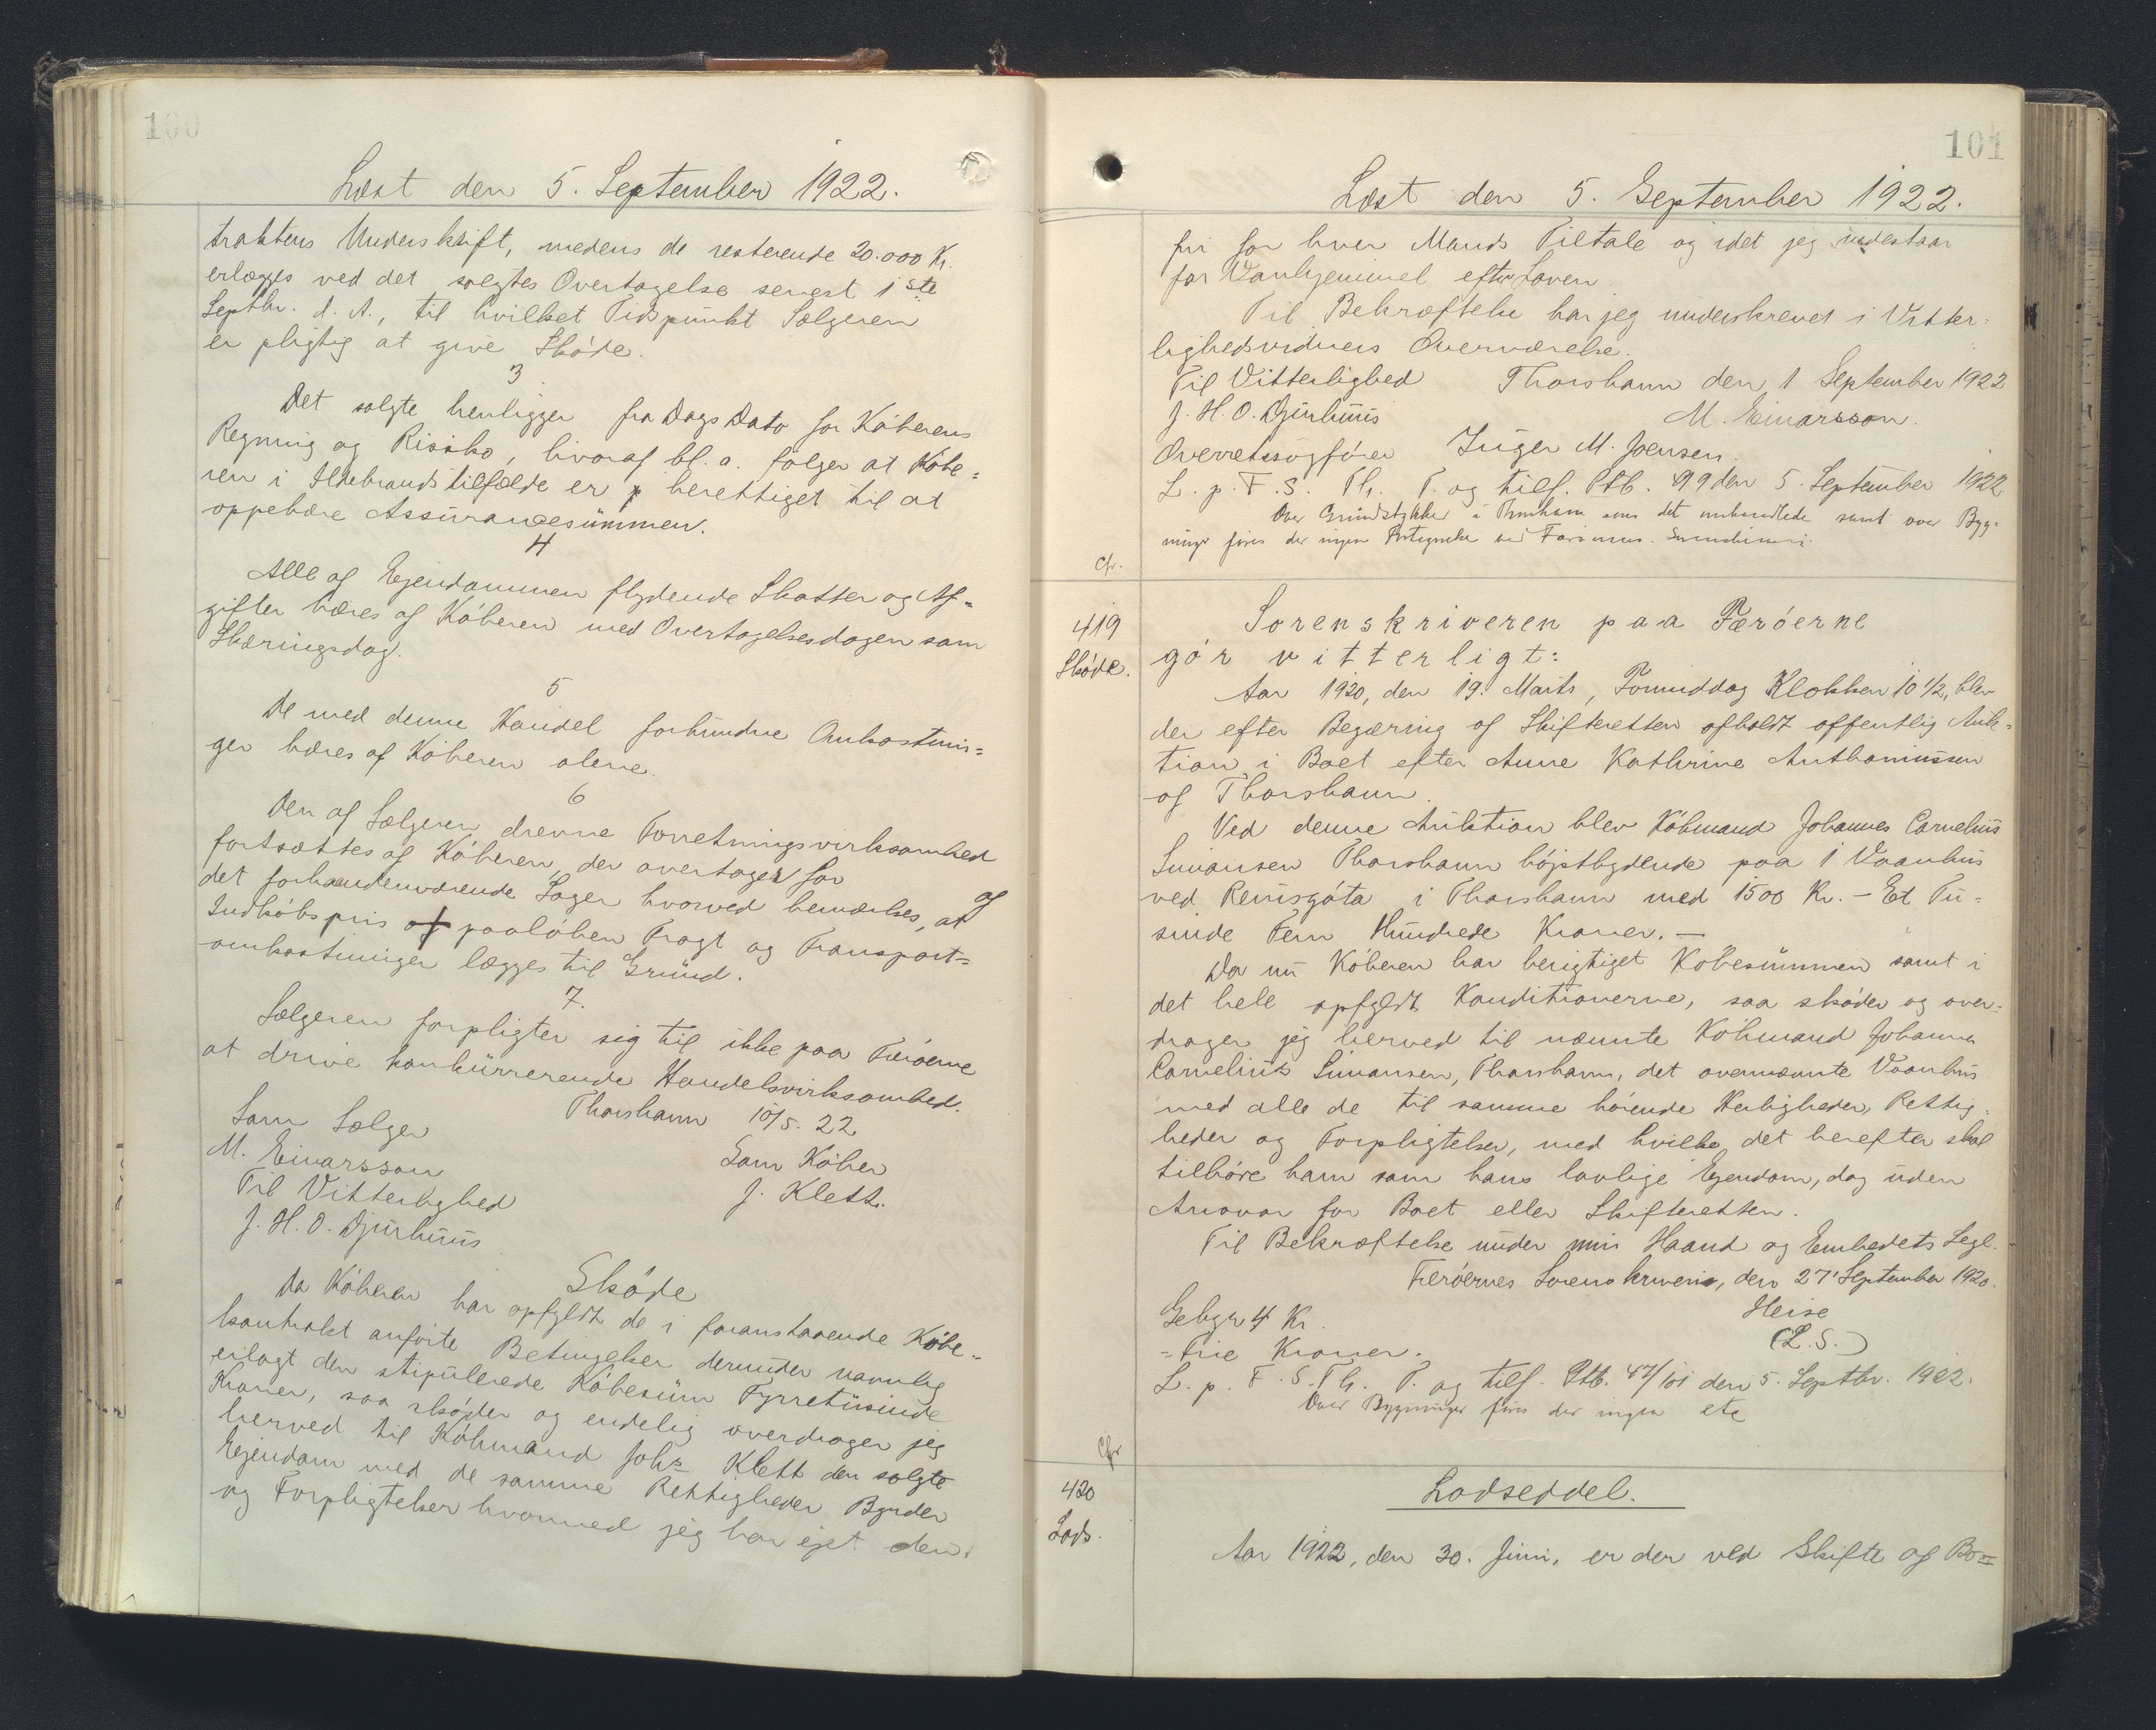 100
Læst den 5. September 1922.
traktens Underskrift, medens de resterende 20.000 Kr.
erlægges ved det solgtes Overtagelse senest 1ste
Septbr. d. A., til hvilket Tidspunkt Sælgeren
er pligtig at give Skøde.
3
Det solgte henligger fra Dags Dato for Køberens
Regning og Risiko, hvoraf bl. a. følger at Købe=
ren i Ildebrandstilfælde er berettiget til at
oppebære Assurancesummen.
4
Alle af Ejendommen flydende Skatter og Af=
gifter bæres af Køberen med Overtagelsesdagen som
Skæringsdag.
5
De med denne Handel forbundne Omkostnin=
ger bæres af Køberen alene.
6
Den af Sælgeren drevne Forretningsvirksomhed
fortsættes af Køberen, der overtager for
det forhaandenværende Lager hvorved bemærkes, at
Indkøbspris og paaløben Fragt og Transport=
omkostninger lægges til Grund.
7.
Sælgeren forpligter sig til ikke paa Færøerne
at drive konkurrerende Handelsvirksomhed.
Thorshavn 10/5. 22
Som Sælger
Som Køber
M. Einarsson
J. Klett.
Til Vitterlighed
J. H. O. Djurhuus
Skøde
Da Køberen har opfyldt de i foranstaaende Købe=
kontrakt anførte Betingelser derunder navnlig
erlagt den stipulerede Købesum Fyrretusinde
Kroner, saa skøder og endelig overdrager jeg
herved til Købmand Johs Klett den solgte
Ejendom med de samme Rettigheder Byrder
og Forpligtelser hvormed jeg har ejet den.
101
Læst den 5. September 1922.
fri for hver Mands Tiltale og idet jeg indestaar
for Vanhjemmel efter Loven
Til Bekræftelse har jeg underskrevet i Vitter=
lighedsvidners Overværelse.
Til Vitterlighed Thorshavn den 1 September 1922
J. H. O. Djurhuus M. Einarsson.
Overretssagfører Inger M. Joensen.
L. p. F. S. Th. T. og tilf. Ptb. 99 den 5. September 1922
Over Grundstykker i Thorshavn som det omhandlede samt over Byg=
ninger føres der ingen
cfr.
419
Skøde.
Sorenskriveren paa Færøerne
gør vitterligt:
Aar 1920, den 19. Marts, Formiddag Klokken 10 1/2, blev
der efter Begæring af Skifteretten afholdt offentlig Auk=
tion i Boet efter Anne Kathrine Anthoniussen
af Thorshavn.
Ved denne Auktion blev Købmand Johannes Cornelius
Simonsen Thorshavn højstbydende paa 1 Vaanhus
ved Reinsgøta i Thorshavn med 1500 Kr. – Et Tu=
sinde Fem Hundrede Kroner. –
Da nu Køberen har berigtiget Købesummen samt i
det hele opfyldt Konditionerne, saa skøder og over=
drager jeg herved til nævnte Købmand Johannes
Cornelius Simonsen, Thorshavn, det ovennævnte Vaanhus
med alle de til samme hørende Herligheder, Rettig=
heder og Forpligtelser, med hvilke det herefter skal
tilhøre ham som hans lovlige Ejendom, dog uden
Ansvar for Boet eller Skifteretten.
Til Bekræftelse under min Haand og Embedets Segl.
Færøernes Sorenskriveri, den 27' September 1920.
Heise
Gebyr 4 Kr.
(L. S.)
= Fire Kroner.
L. p. F. S. Th. T. og tilf. Ptb. 47/101 den 5. Septbr. 1922.
Over Bygninger føres der ingen etc
cfr
420
Lods.
Lodseddel.
Aar 1922, den 30. Juni, er der ved Skifte af Bo=